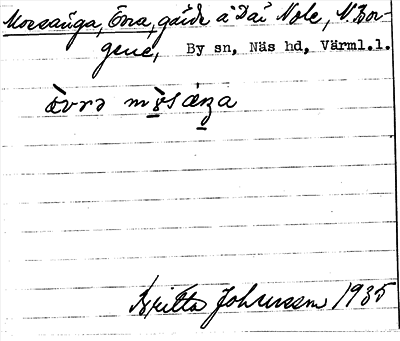 Morsänga, Övra, gård å Dai Nole, N. Bor-
gene, By sn, Näs hd, Värml.l.
Britta Johansson 1935